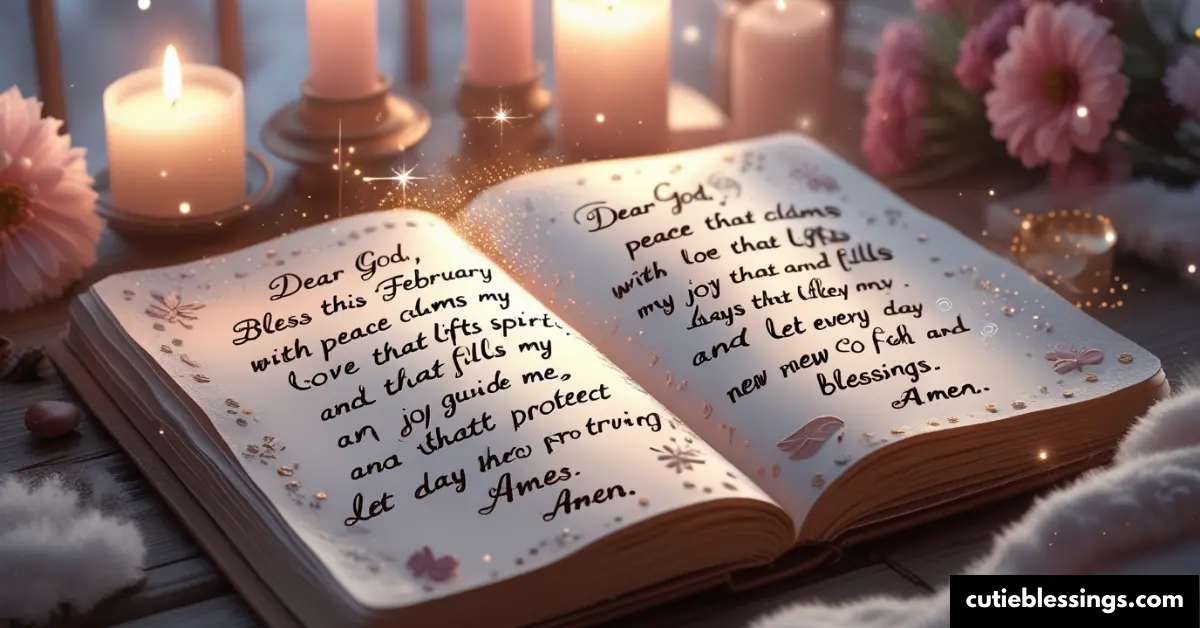 Dear God,
Bless this February
with peace calms my
Love that lifts spirt.
and that fills my
an joy guide me,
ana thatt proteect
let day theo protruing
Ames.
Amen.
Dear God,
peace that clams
with loe that Lifts
my joy that and fills
days that likey my.
and let every day
new mew co fch and
blessings.
Amen..
cutieblessings.com